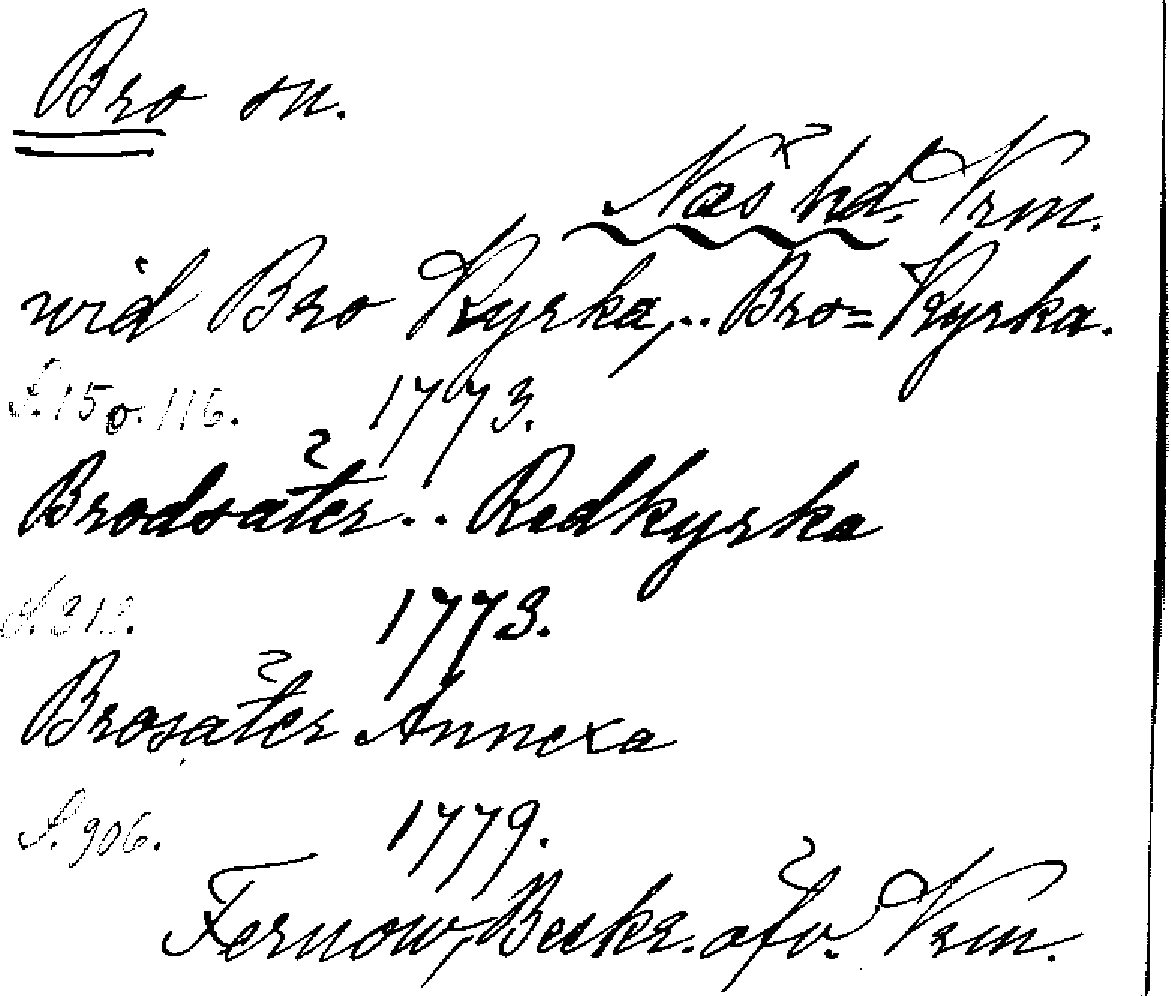 Bro sn.
Näs hd. Vrm.
wid Bro Kyrka,.. Bro=Kyrka.
S. 15 o. 116. 1773.
Brodsäter.. Redkyrka
S. 313. 1773.
Brosäter Annexa
S. 906. 1779.
Fernow, Beskr. öfv. Vrm.